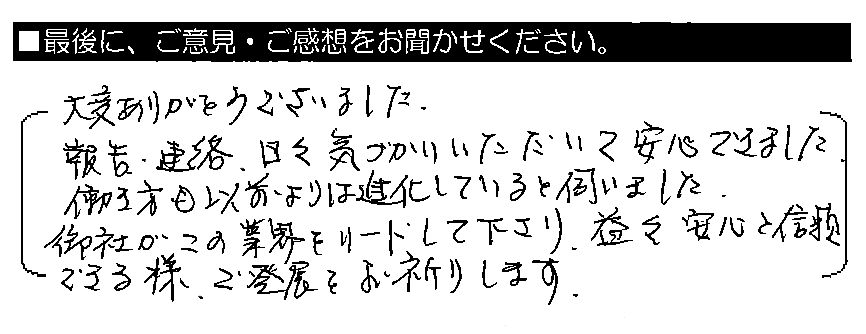 ■最後に、ご意見・ご感想をお聞かせください。
大変ありがとうございました.
報告・連絡、日々気づかりいただいて安心できました.
働き方も以前よりは進化していると伺いました.
御社がこの業界をリードして下さり、益々安心と信頼
できる様、ご発展をお祈りします.